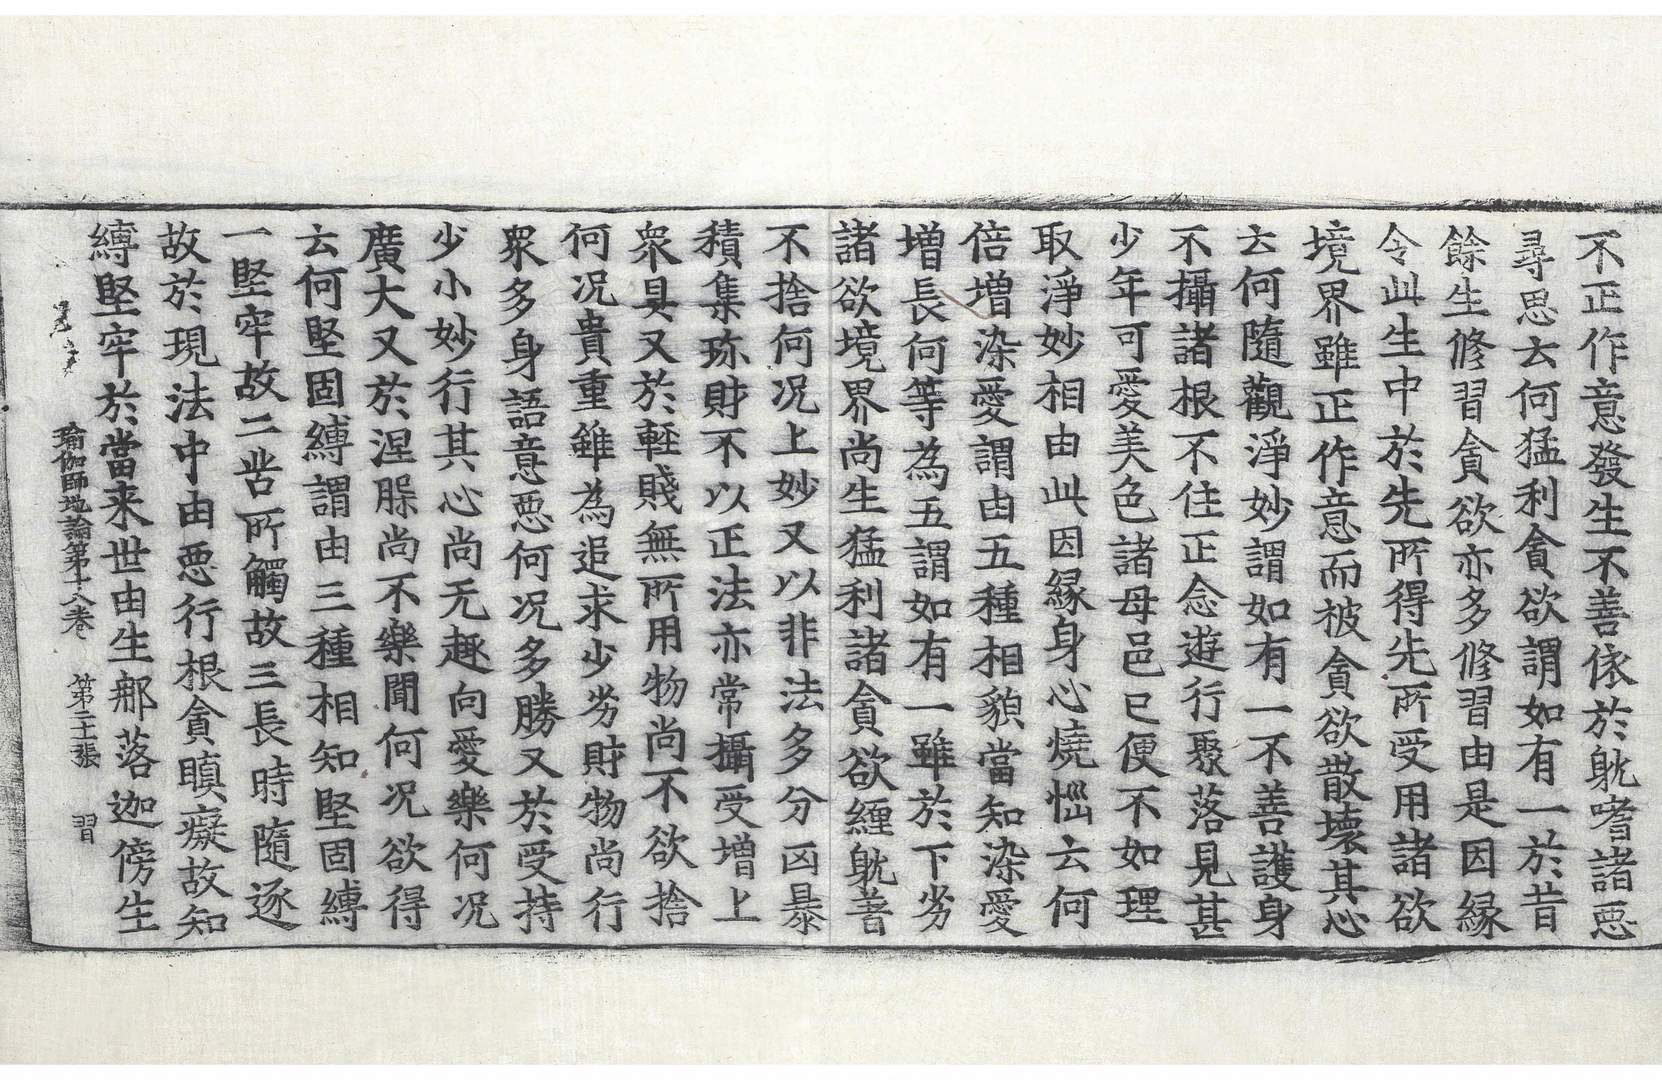 不正作意發生不善依於躭嗜諸惡
尋思云何猛利貪欲謂如有一於昔
餘生修習貪欲亦多修習由是因緣
令此生中於先所得先所受用諸欲
境界雖正作意而被貪欲散壞其心
云何隨觀淨妙謂如有一不善護身
不攝諸根不住正念遊行聚落見甚
少年可愛美色諸母邑已便不如理
取淨妙相由此因緣身心燒惱云何
倍增染愛謂由五種相貌當知染愛
增長何等為五謂如有一雖於下劣
諸欲境界尚生猛利諸貪欲纏躭著
不捨何况上妙又以非法多分凶暴
積集珎財不以正法亦常攝受增上
衆具又於輕賤無所用物尚不欲捨
何况貴重雖為追求少劣財物尚行
衆多身語意惡何况多勝又於受持
少小妙行其心尚无趣向愛樂何况
廣大又於涅槃尚不樂聞何况欲得
云何堅固縛謂由三種相知堅固縛
一堅牢故二苦所觸故三長時隨逐
故於現法中由惡行根貪瞋癡故知
縛堅牢於當来世由生那落迦傍生
瑜伽師地論第十八卷 第二十張 習